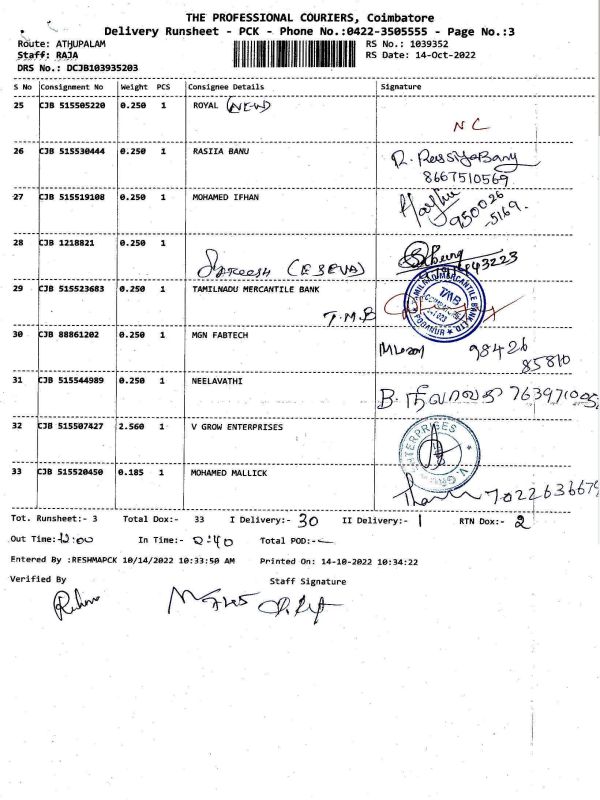 THE PROFESSIONAL COURIERS, Coimbatore
Delivery Runsheet - PCK - Phone No.:0422-3505555 - Page No.:3
Route: ATHUPALAM RS No.: 1039352
Staff: RAJA RS Date: 14-Oct-2022
DRS No.: DCJB103935203
S No Consignment No Weight PCS Consignee Details Signature
25 CJB 515505220 0.250 1 ROYAL (NEW)
NC
26 CJB 515530444 0.250 1 RASIIA BANU
8667510569
27 CJB 515519108 0.250 1 MOHAMED IFHAN
950026
-5169.
28 CJB 1218821 0.250 1
(ESEVA)
29 CJB 515523683 0.250 1 TAMILNADU MERCANTILE BANK
T.M.B
30 CJB 88861202 0.250 1 MGN FABTECH
98426
85810
31 CJB 515544989 0.250 1 NEELAVATHI
B.
32 CJB 515507427 2.560 1 V GROW ENTERPRISES
33 CJB 515520450 0.185 1 MOHAMED MALLICK
7022636679
Tot. Runsheet:- 3 Total Dox:- 33 I Delivery:- 30 II Delivery:- 1 RTN Dox:- 2
Out Time:- 12:00 In Time:- 2:40 Total POD:-
Entered By :RESHMAPCK 10/14/2022 10:33:50 AM Printed On: 14-10-2022 10:34:22
Verified By Staff Signature